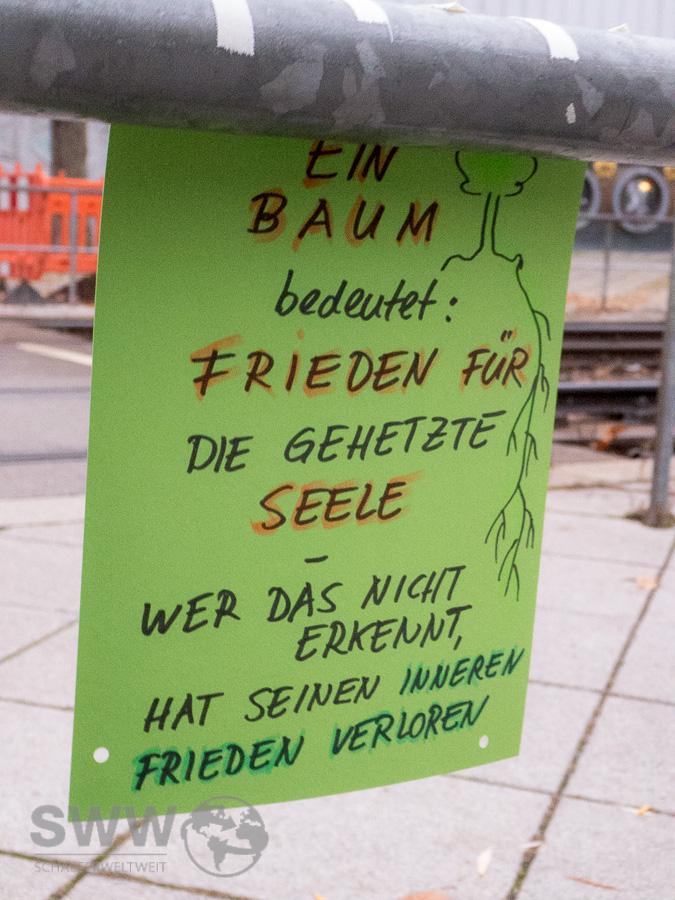 EIN
BAUM
bedeutet:
FRIEDEN FÜR
DIE GEHETZTE
SEELE
–
WER DAS NICHT
ERKENNT,
HAT SEINEN INNEREN
FRIEDEN VERLOREN
SWW
SCHALTENWELTWEIT